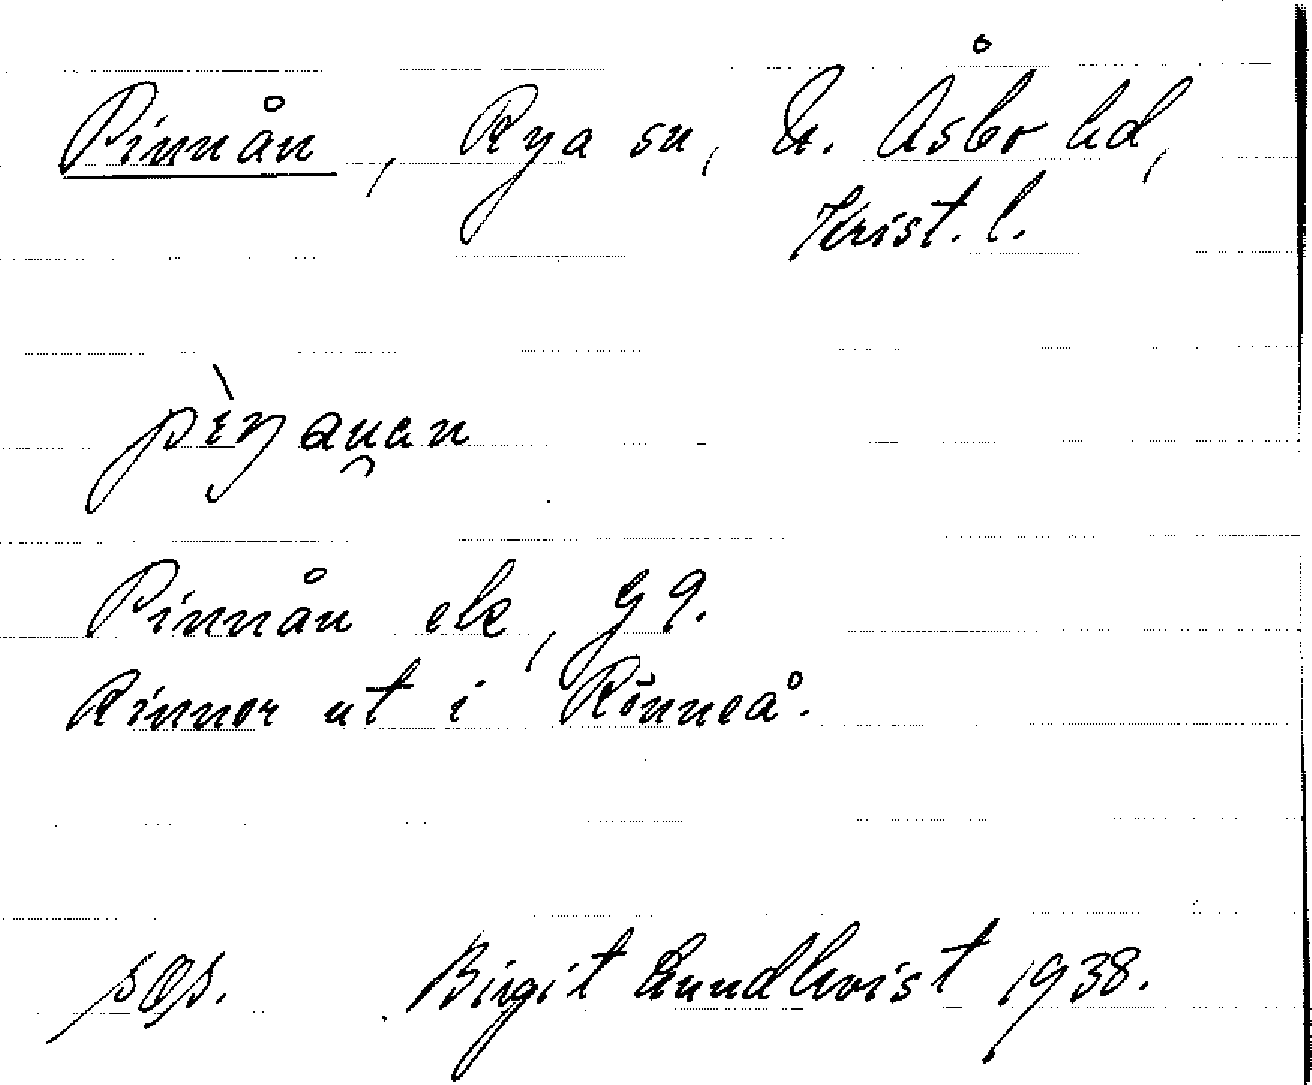 Pinnån, Rya sn, N. Åsbo hd,
Krist. l.
Pinnån ek, G 9.
Rinner ut i Rönneå.
Birgit Lundkvist 1938.